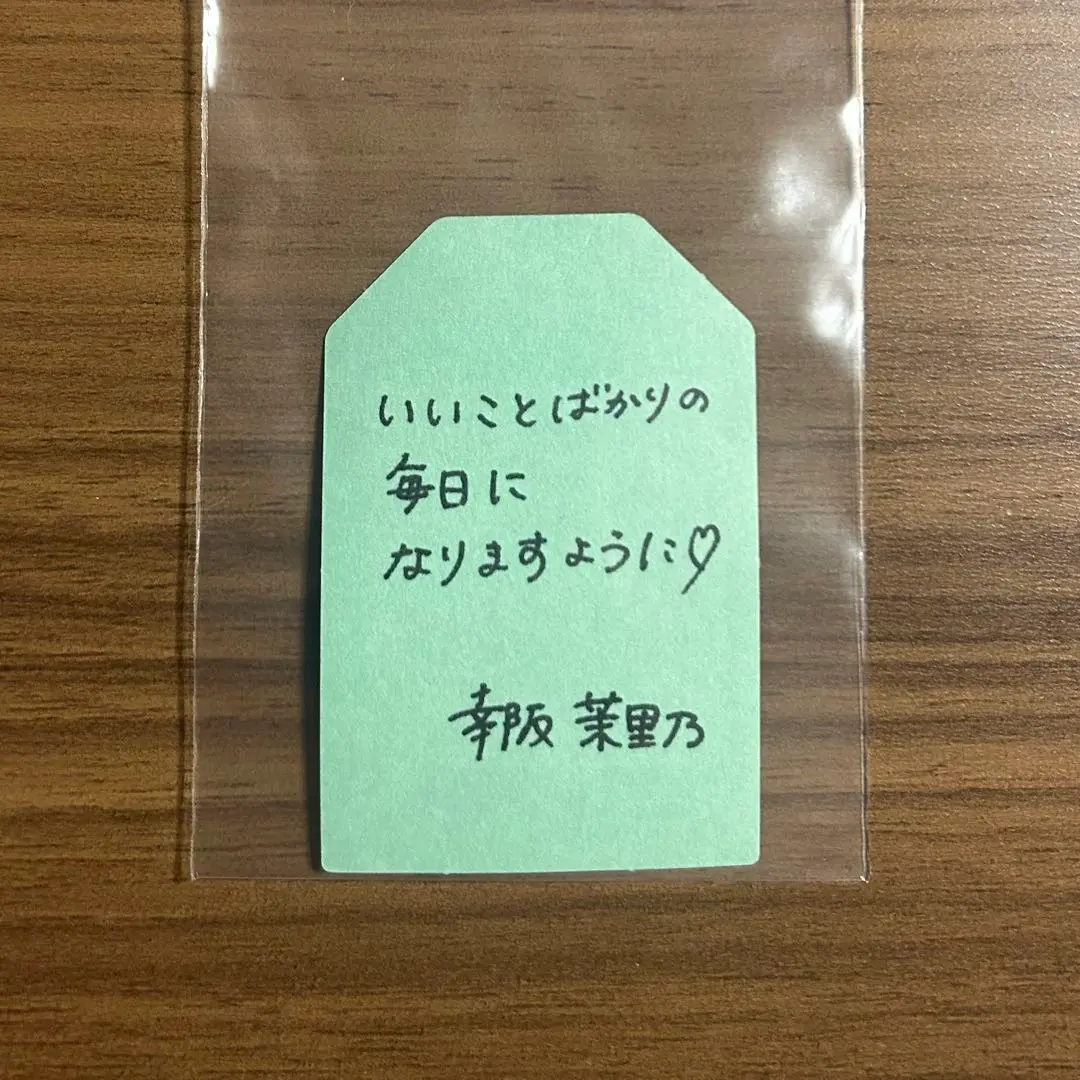 いいことばかりの
毎日に
なりますように♡
幸阪 茉里乃